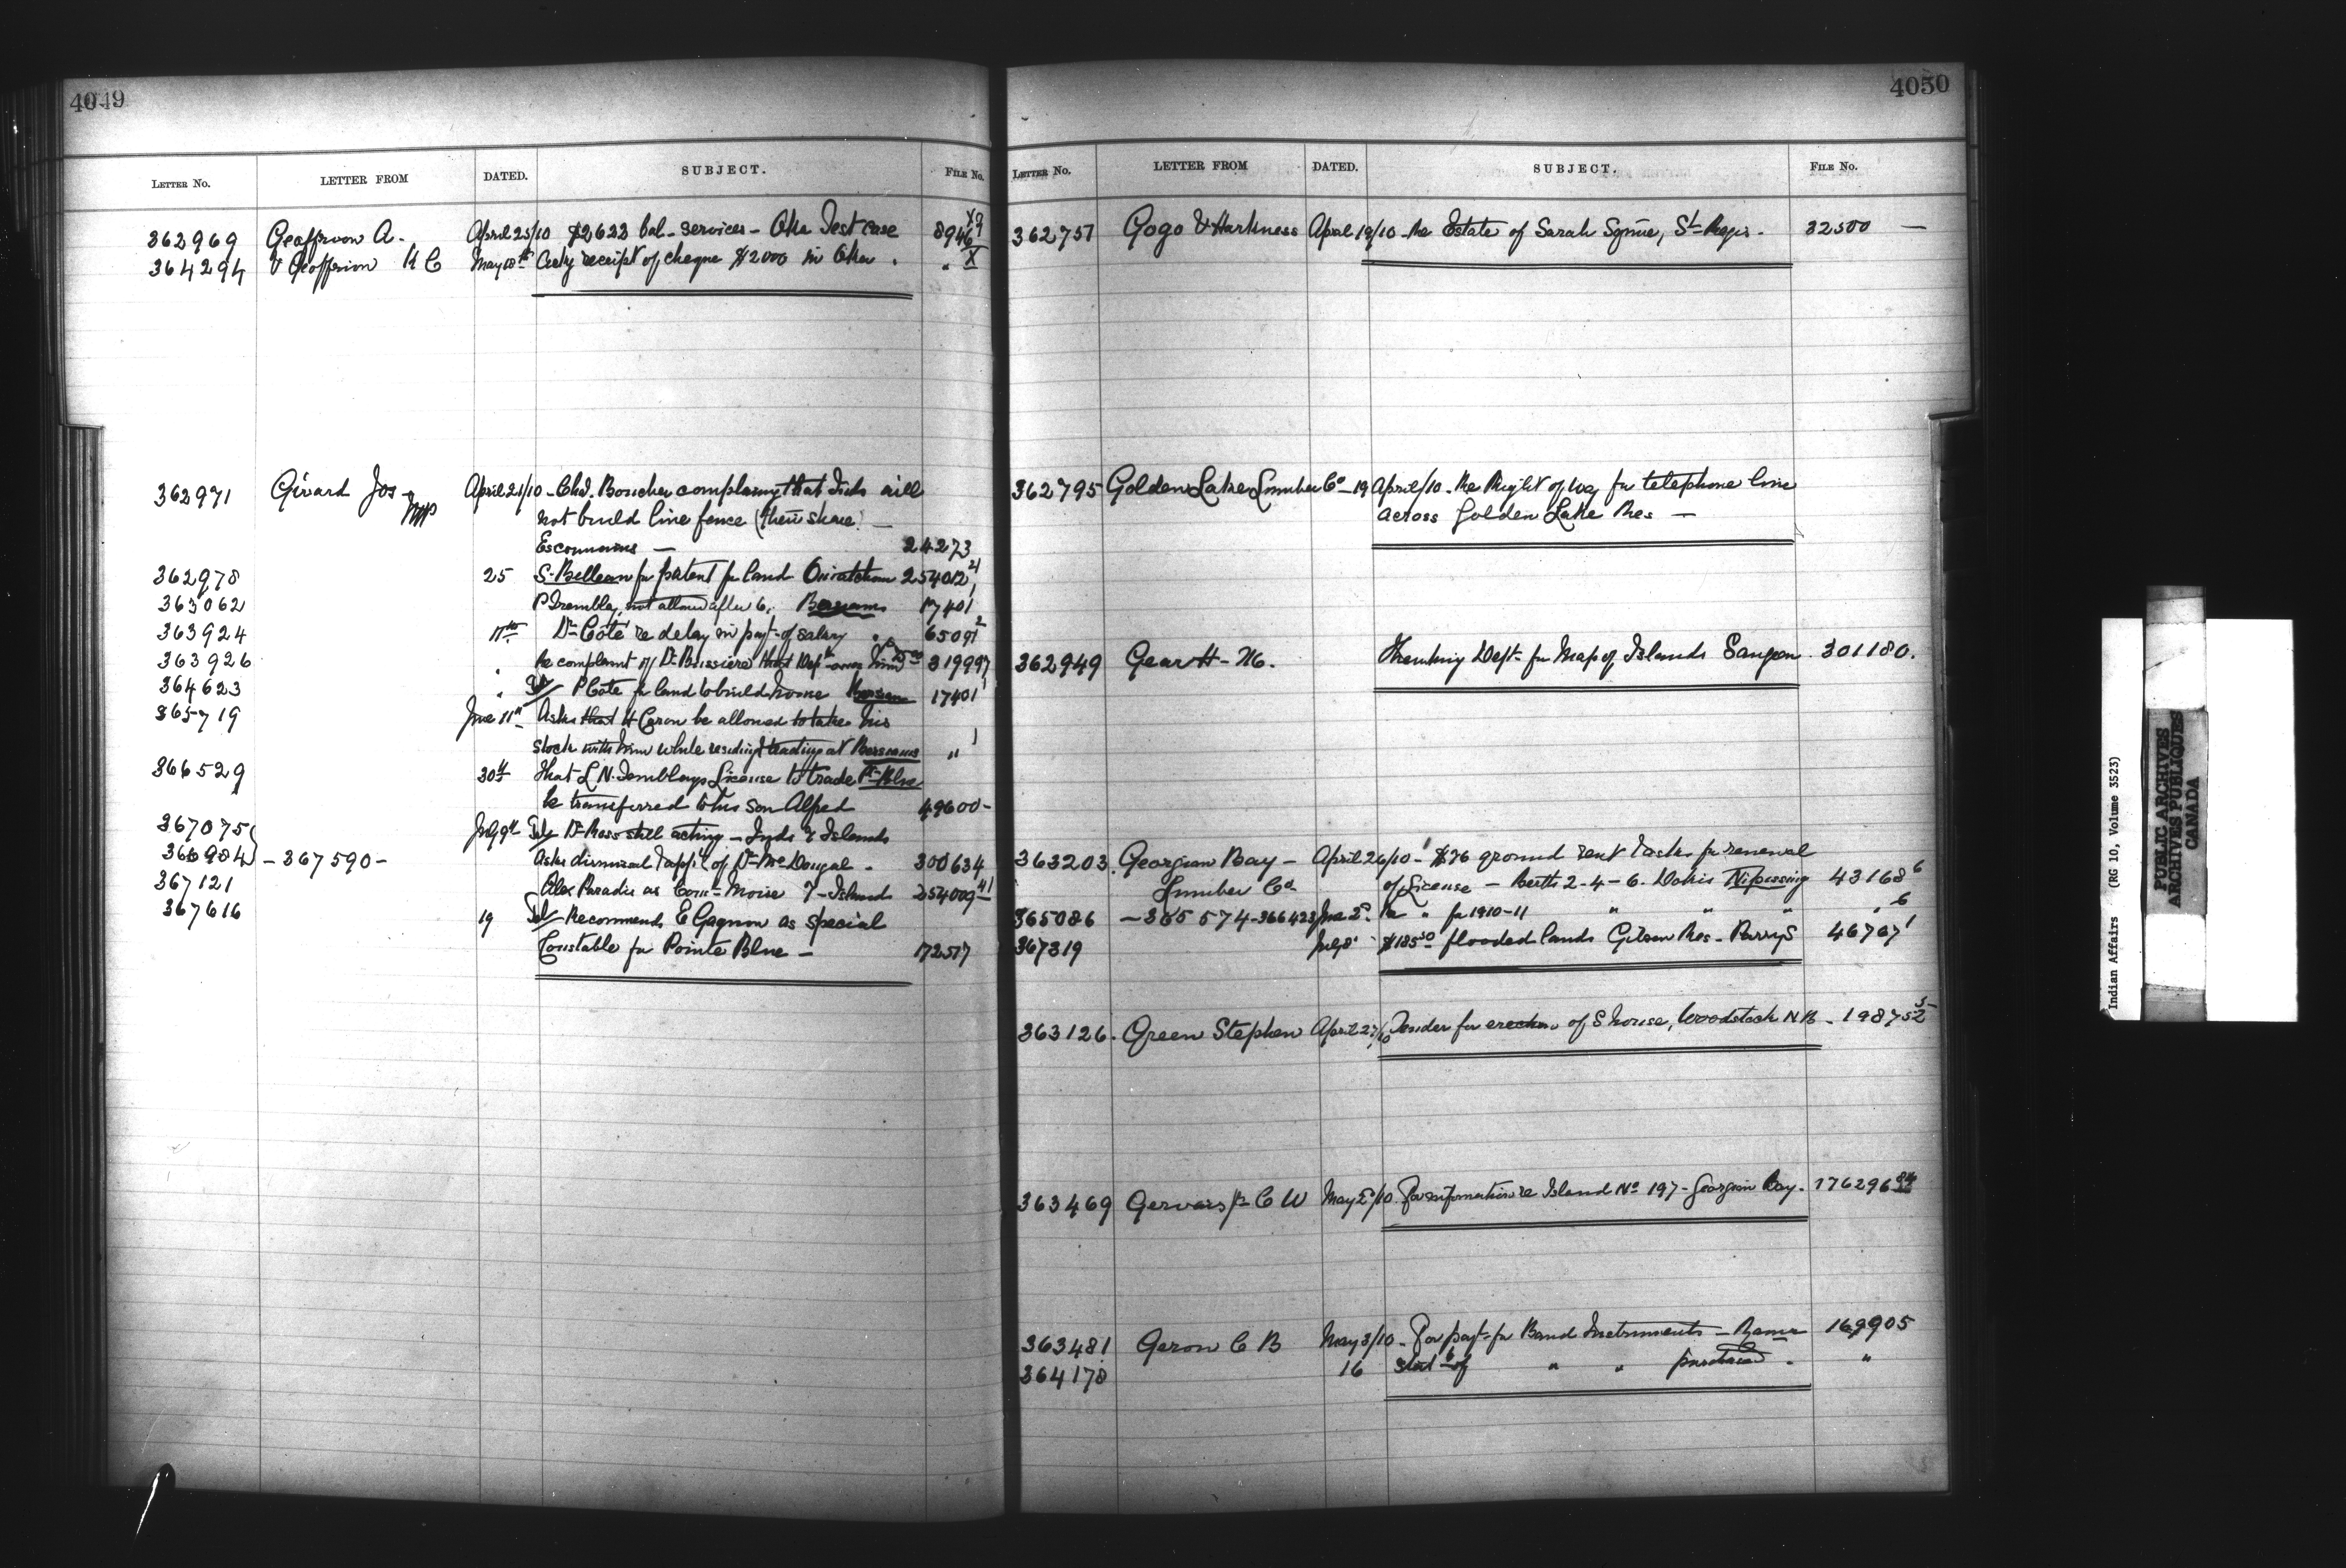 4049
LETTER NO. LETTER FROM DATED. SUBJECT. FILE NO.
362969 Geoffrion A. April 25/10 $2623 bal. services - Oka Test case 8946
364294 V Geoffrion K C May 18th Ackg receipt of cheque $2000 in Oka . " X
362971 Girard Jos - MP April 21/10 - Chd. Boucher complaining that Inds will
not build line fence (their share) -
Escoumains - 24273
362978 25 S. Bellean for patent for land Ouiatchouan 254012
363062 P Tremblay, not allowed after 6. Bersimis 17401
363924 11th Dr Côté re delay in payt of salary " 65091 2
363926 " Re complaint of Dr Buissiere that Dept owes him 319997
364623 " Tel/ P Cote for land to build house Bersimis 17401 1
365719 June 11th Asks that H Caron be allowed to take his
stock with him while residing & trading at Bersimis " 1
366529 30th That L N. Tremblays License to trade Pt Blue
be transferred to his son Alfred 49600 -
367075 July 9th Tel/ Dr Ross still acting - Inds & Islands
366984 - 367590 - Asks dismissal & app't of Dr McDougal - 300634
367121 Alex Paradis as Const - Moise 7 - Islands 254009
367616 19 Tel/ Recommends E Gagnon as special
Constable for Pointe Blue - 172517
4050
LETTER NO. LETTER FROM DATED. SUBJECT. FILE NO.
362757 Gogo & Harkness April 19/10 - Re Estate of Sarah St Regis - 32500 -
362795 Golden Lake Lumber Co - 19 April/10 - Re Right of Way for telephone line
across Golden Lake Res -
362949 Gear H - M. Thanking Dept for Map of Islands Saugeen . 301180.
363203. Georgian Bay - April 26/10 - $76 ground rent & asks for renewal
Lumber Co. of License - Berth 2 - 4 - 6. Dokis Nipissing 43168 6
365086 - 365574 - 366423 June 2d. Re " for 1910-11 " " " " 6
367319 July 8 $185.50 flooded lands Gibson Res - Parry S 46767 1
363126. Green Stephen April 27/10 Tender for erection of S house, Woodstock N B - 19875
363469 Gervais Jr C W May 2d/10. For information re Island No 197 - Georgian Bay . 176296
363481 Geron C B May 3/10 - For payt for Band Instruments - Rama 169905
364178 16 Stat of " " purchased . "
Indian Affairs (RG 10, Volume 3523)
PUBLIC ARCHIVES
ARCHIVES PUBLIQUES
CANADA